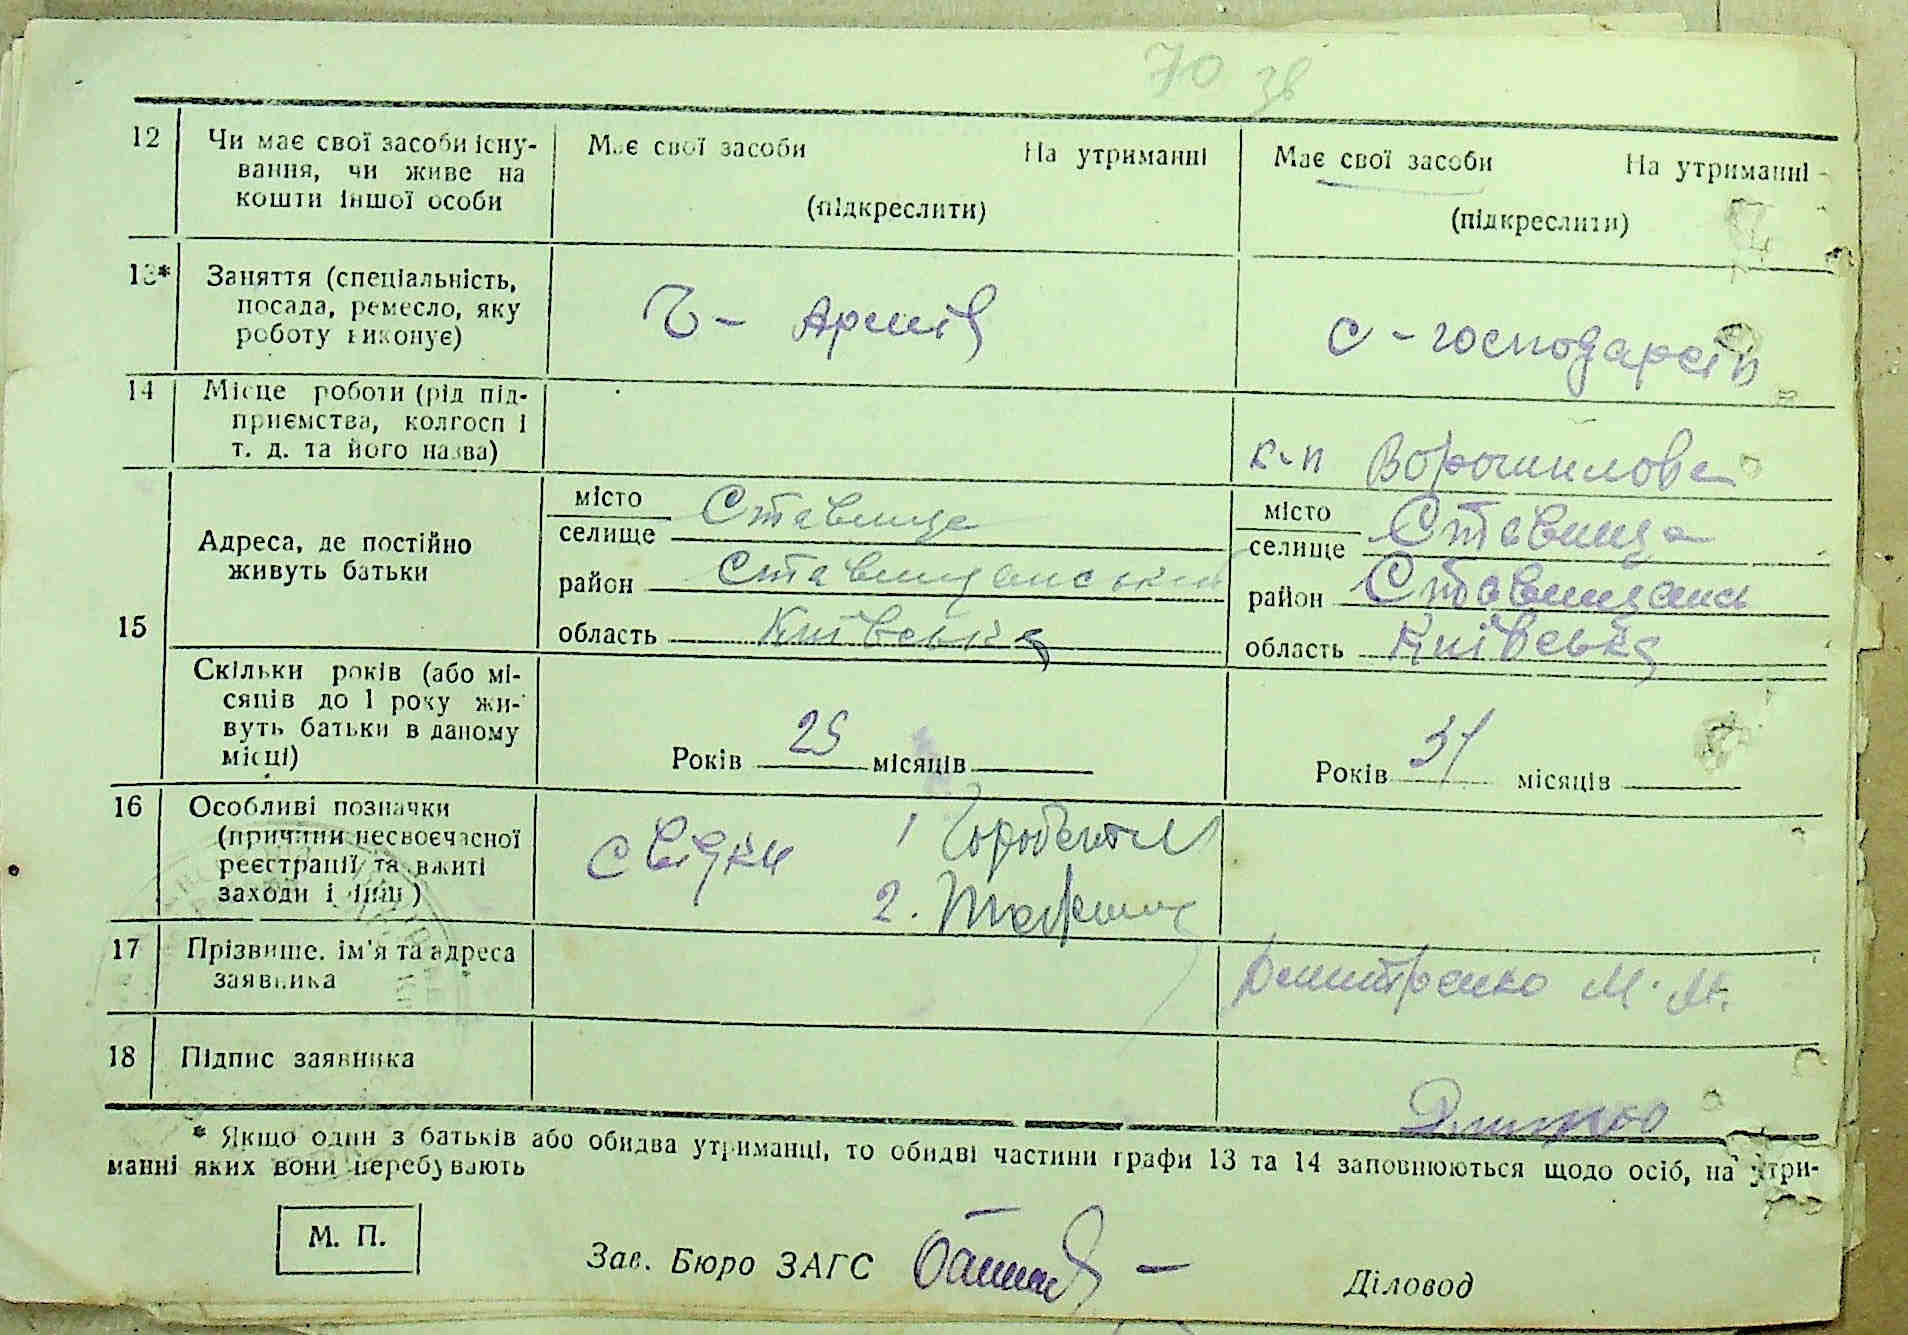 70 зв
12 Чи має свої засоби існу-
вання, чи живе на
кошти іншої особи
Має свої засоби На утриманні
(підкреслити)
Має свої засоби На утриманні
(підкреслити)
13* Заняття (спеціальність,
посада, ремесло, яку
роботу виконує)
Армія
с-господарств
14 Місце роботи (рід під-
приємства, колгосп і
т. д. та його назва)
к-п Ворошилова
15
Адреса, де постійно
живуть батьки
місто
селище Ставище
район Ставищанський
область Київська
місто
селище Ставища
район Ставищанск
область Київська
Скільки років (або мі-
сяців до 1 року жи-
вуть батьки в даному
місці)
Років 25 місяців
Років 31 місяців
16 Особливі позначки
(причини несвоєчасної
реєстрації та вжиті
заходи і інш)
Свідки 1
2.
17 Прізвище, ім'я та адреса
заявника
Дмитренко М. М.
18 Підпис заявника
* Якщо один з батьків або обидва утриманці, то обидві частини графи 13 та 14 заповнюються щодо осіб, на утри-
манні яких вони перебувають
М. П.
Зав. Бюро ЗАГС
Діловод